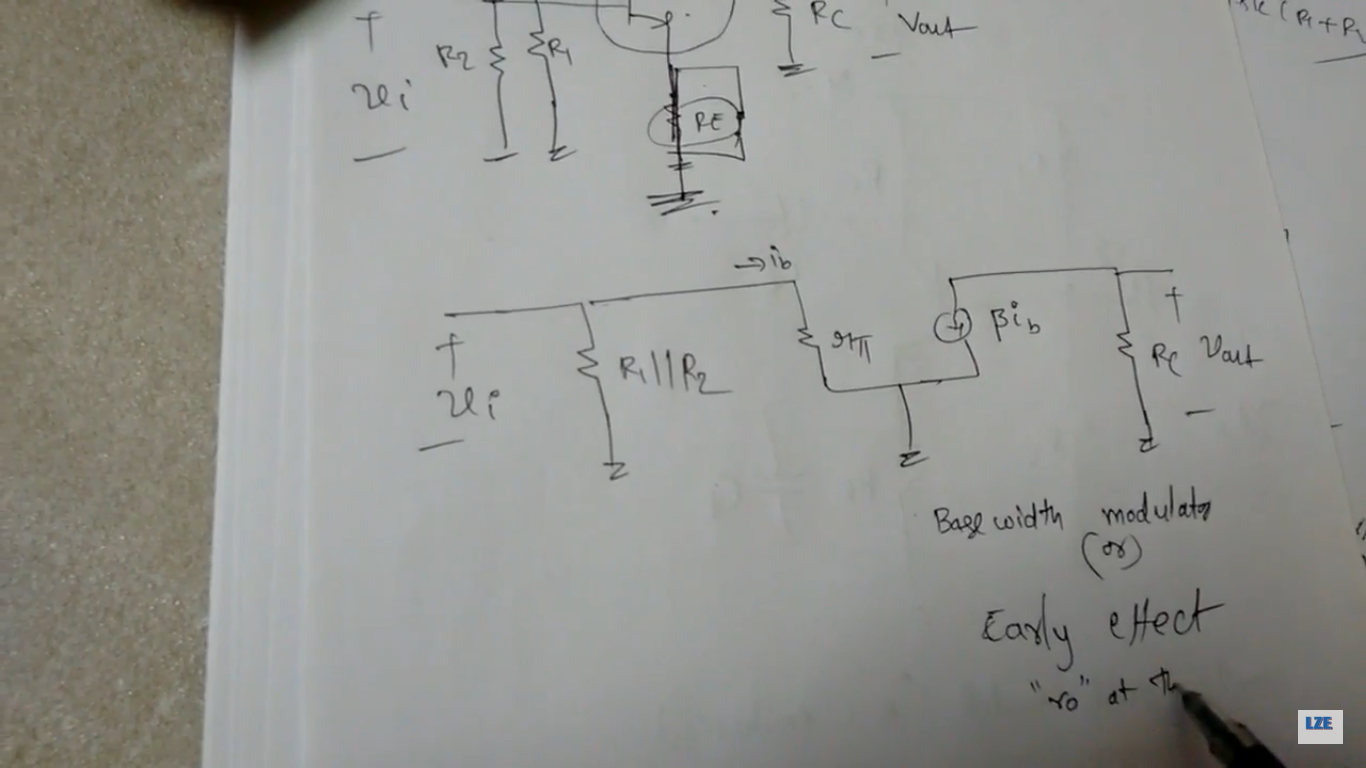 + R2 R1 RC Vout
vi
-
RE
(R1+R
→ib
+
vi
-
R1||R2
rπ
βib
RC
+
Vout
-
Base width modulator
(or)
Early effect
"ro" at th
LZE